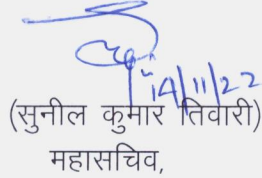 14/11/22
(सुनील कुमार तिवारी)
महासचिव,